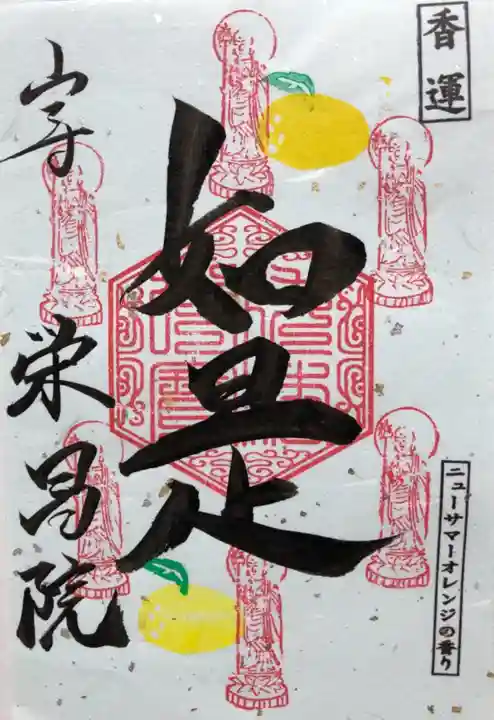 香運
如是
山寺
栄昌院
ニューサマーオレンジの香り